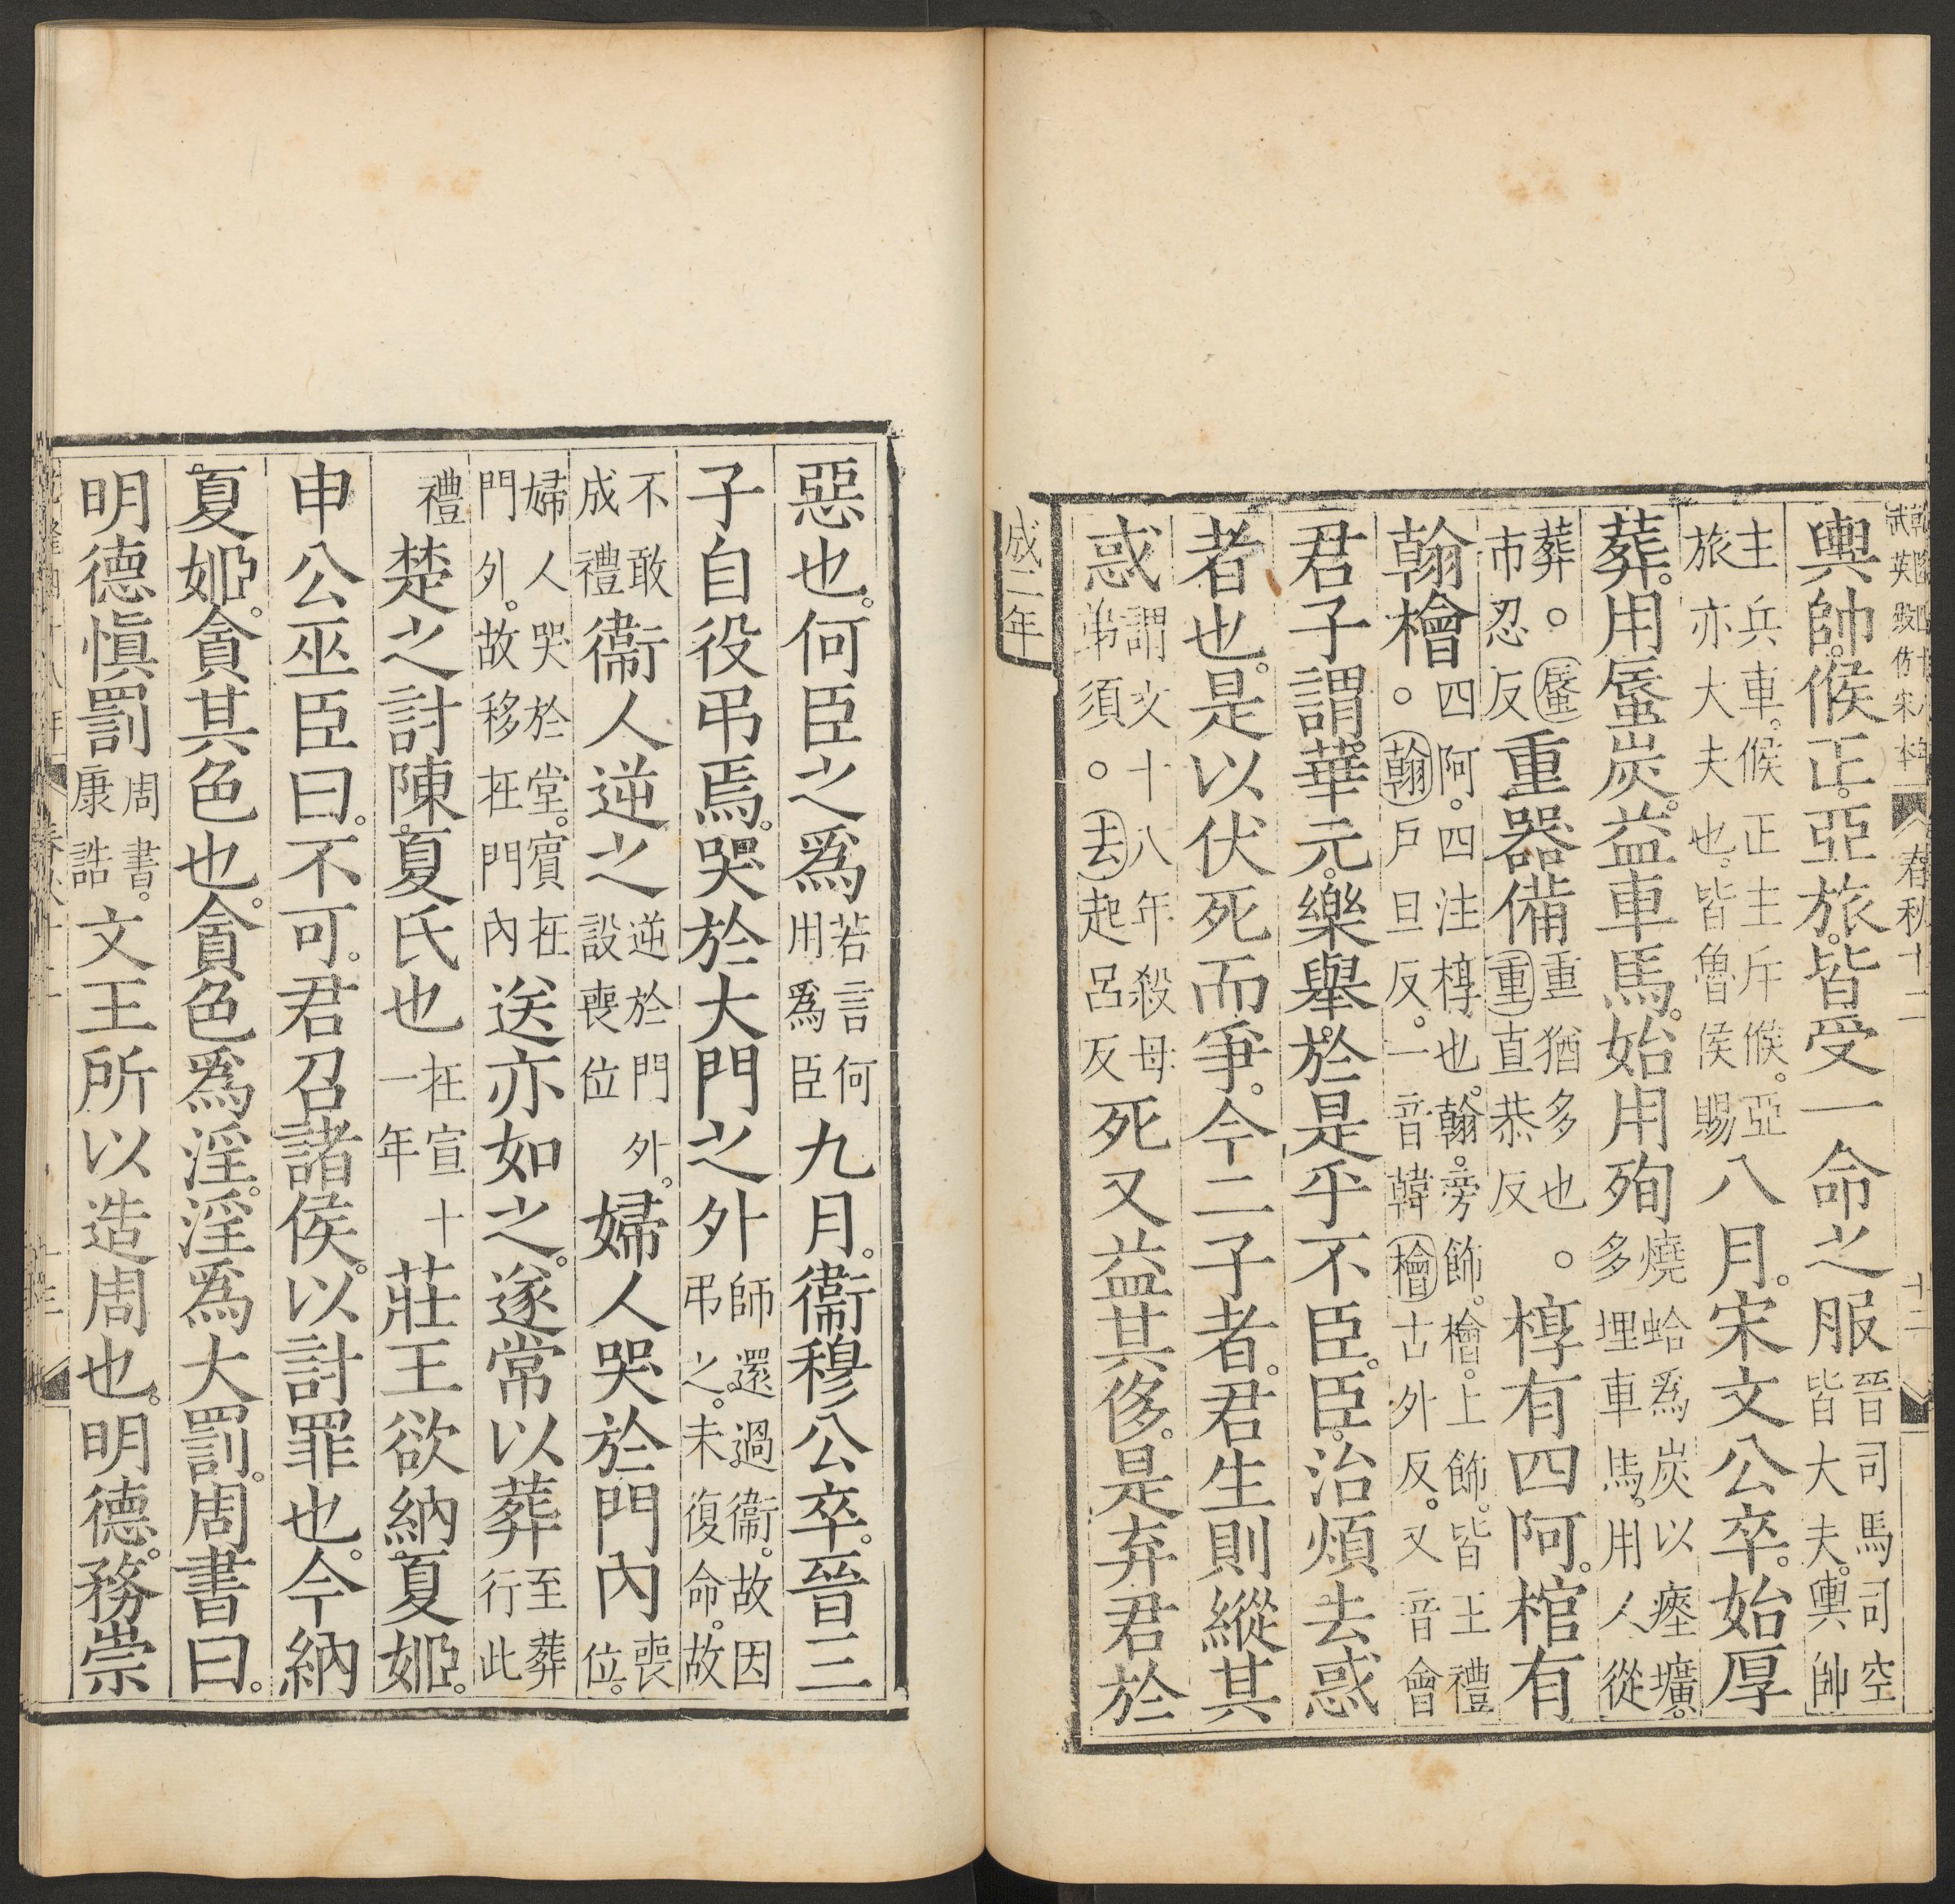 輿帥。候正。亞旅。皆受一命之服晉司馬司空皆大夫。輿帥
主兵車。候正主斥候。亞旅亦大夫也。皆魯侯賜八月。宋文公卒。始厚
葬。用蜃炭。益車馬。始用殉燒蛤爲炭以瘞壙。多埋車馬。用人從
葬。○蜃市忍反重器備重猶多也○重直恭反椁有四阿。棺有
翰檜四阿。四注椁也。翰。旁飾。檜。上飾。皆王禮○翰戶旦反。一音韓檜古外反。又音會
君子謂華元。樂舉。於是乎不臣。臣。治煩去惑
者也。是以伏死而爭。今二子者。君生則縱其
惑謂文十八年殺母弟須○去起呂反死又益其侈。是弃君於
成二年
惡也。何臣之爲若言何用爲臣九月。衞穆公卒。晉三
子自役弔焉。哭於大門之外師還過衞。故因弔之。未復命。故
不敢成禮衞人逆之逆於門外。設喪位婦人哭於門內喪位。
婦人哭於堂。賓在門外。故移在門內送亦如之。遂常以葬至葬行此
禮楚之討陳夏氏也在宣十一年莊王欲納夏姬。
申公巫臣曰。不可。君召諸侯。以討罪也。今納
夏姬。貪其色也。貪色爲淫。淫爲大罰。周書曰。
明德愼罰周書。康誥文王所以造周也。明德。務崇
春秋十二
十二